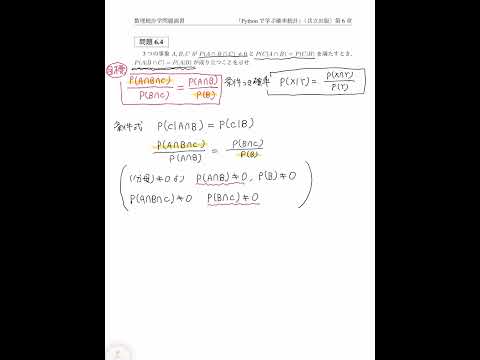 数理統計学問題演習 「Pythonで学ぶ確率統計」（共立出版）第6章
問題 6.4
3つの事象 A, B, C が P(A∩B∩C) ≠ 0 と P(C|A∩B) = P(C|B) を満たすとき、
P(A|B∩C) = P(A|B) が成りつことを示せ
目標
P(A∩B∩C)/P(B∩C) = P(A∩B)/P(B)
条件つき確率 P(X|Y) = P(X∩Y)/P(Y)
条件式 P(C|A∩B) = P(C|B)
P(A∩B∩C)/P(A∩B) = P(B∩C)/P(B)
(分母)≠0より P(A∩B)≠0, P(B)≠0
P(A∩B∩C)≠0 P(B∩C)≠0